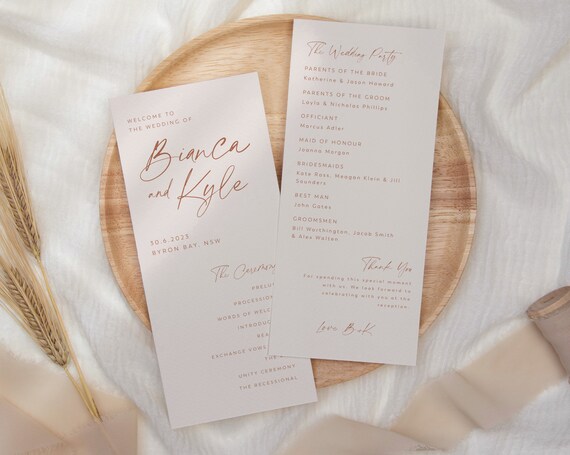 WELCOME TO
THE WEDDING OF
Bianca
and Kyle
30.6.2023
BYRON BAY, NSW
The Ceremony
WORDS OF
EXCHANGE VOWS
THE
UNITY CEREMONY
THE RECESSIONAL
The Wedding Party
PARENTS OF THE BRIDE
Katherine & Jason Howard
PARENTS OF THE GROOM
Layla & Nicholas Phillips
OFFICIANT
Marcus Adler
MAID OF HONOUR
Joanna Morgan
BRIDESMAIDS
Kate Ross, Meegan Klein & Jill
Saunders
BEST MAN
John Gates
GROOMSMEN
Bill Worthington, Jacob Smith
& Alex Walten
Thank You
For spending this special moment
with us. We look forward to
celebrating with you at the
reception
Love B & K